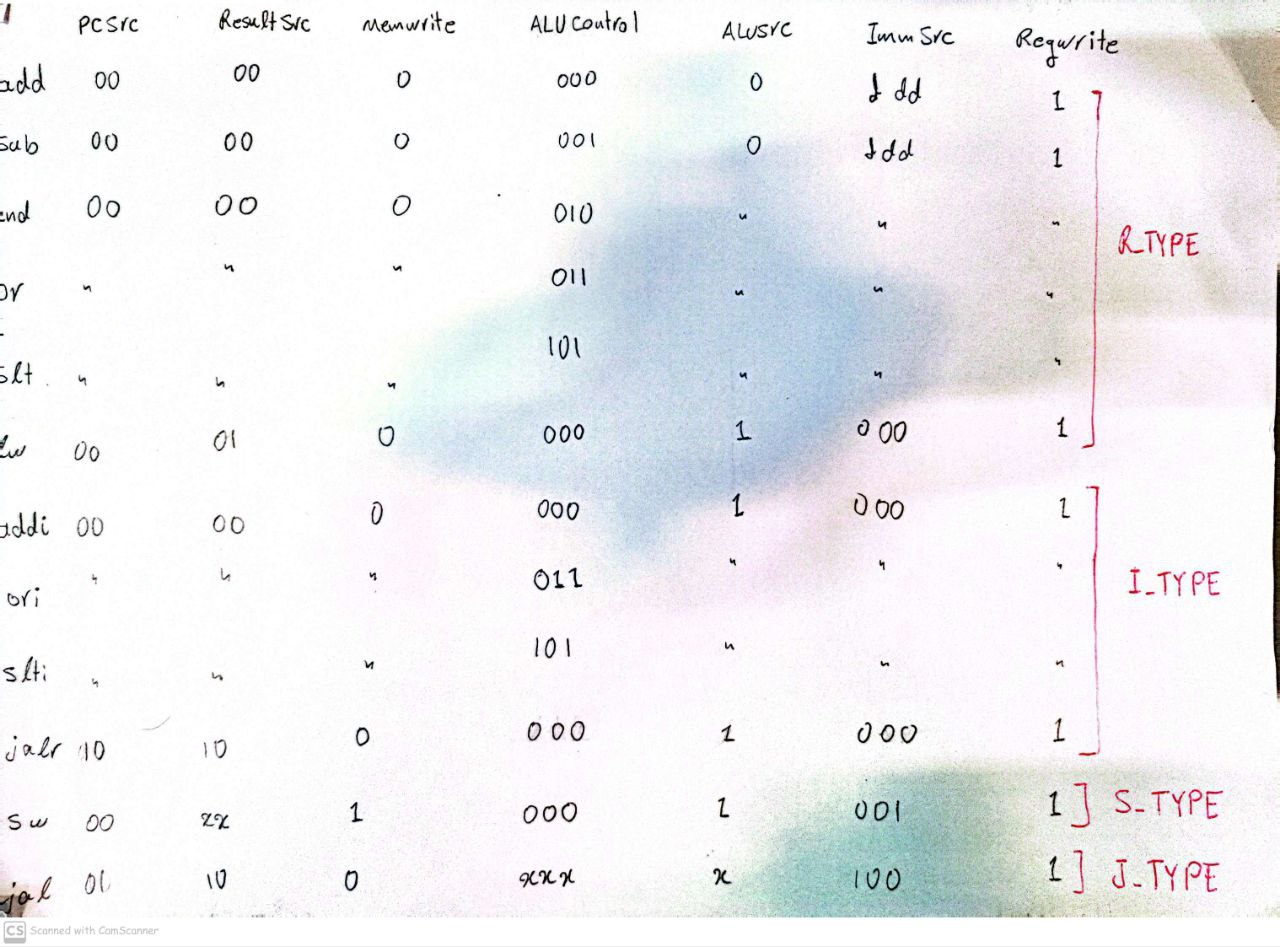 PCSrc ResultSrc Memwrite ALUControl ALUSrc ImmSrc Regwrite
add 00 00 0 000 0 ddd 1
sub 00 00 0 001 0 ddd 1
and 00 00 0 010 " " "
or " " " 011 " " "
slt " " " 101 " " "
R_TYPE
lw 00 01 0 000 1 000 1
addi 00 00 0 000 1 000 1
ori " " " 011 " " "
I_TYPE
slti " " " 101 " " "
jalr 10 10 0 000 1 000 1
sw 00 xx 1 000 1 001 1 S_TYPE
jal 01 10 0 xxx x 100 1 J_TYPE
CS Scanned with ComScanner